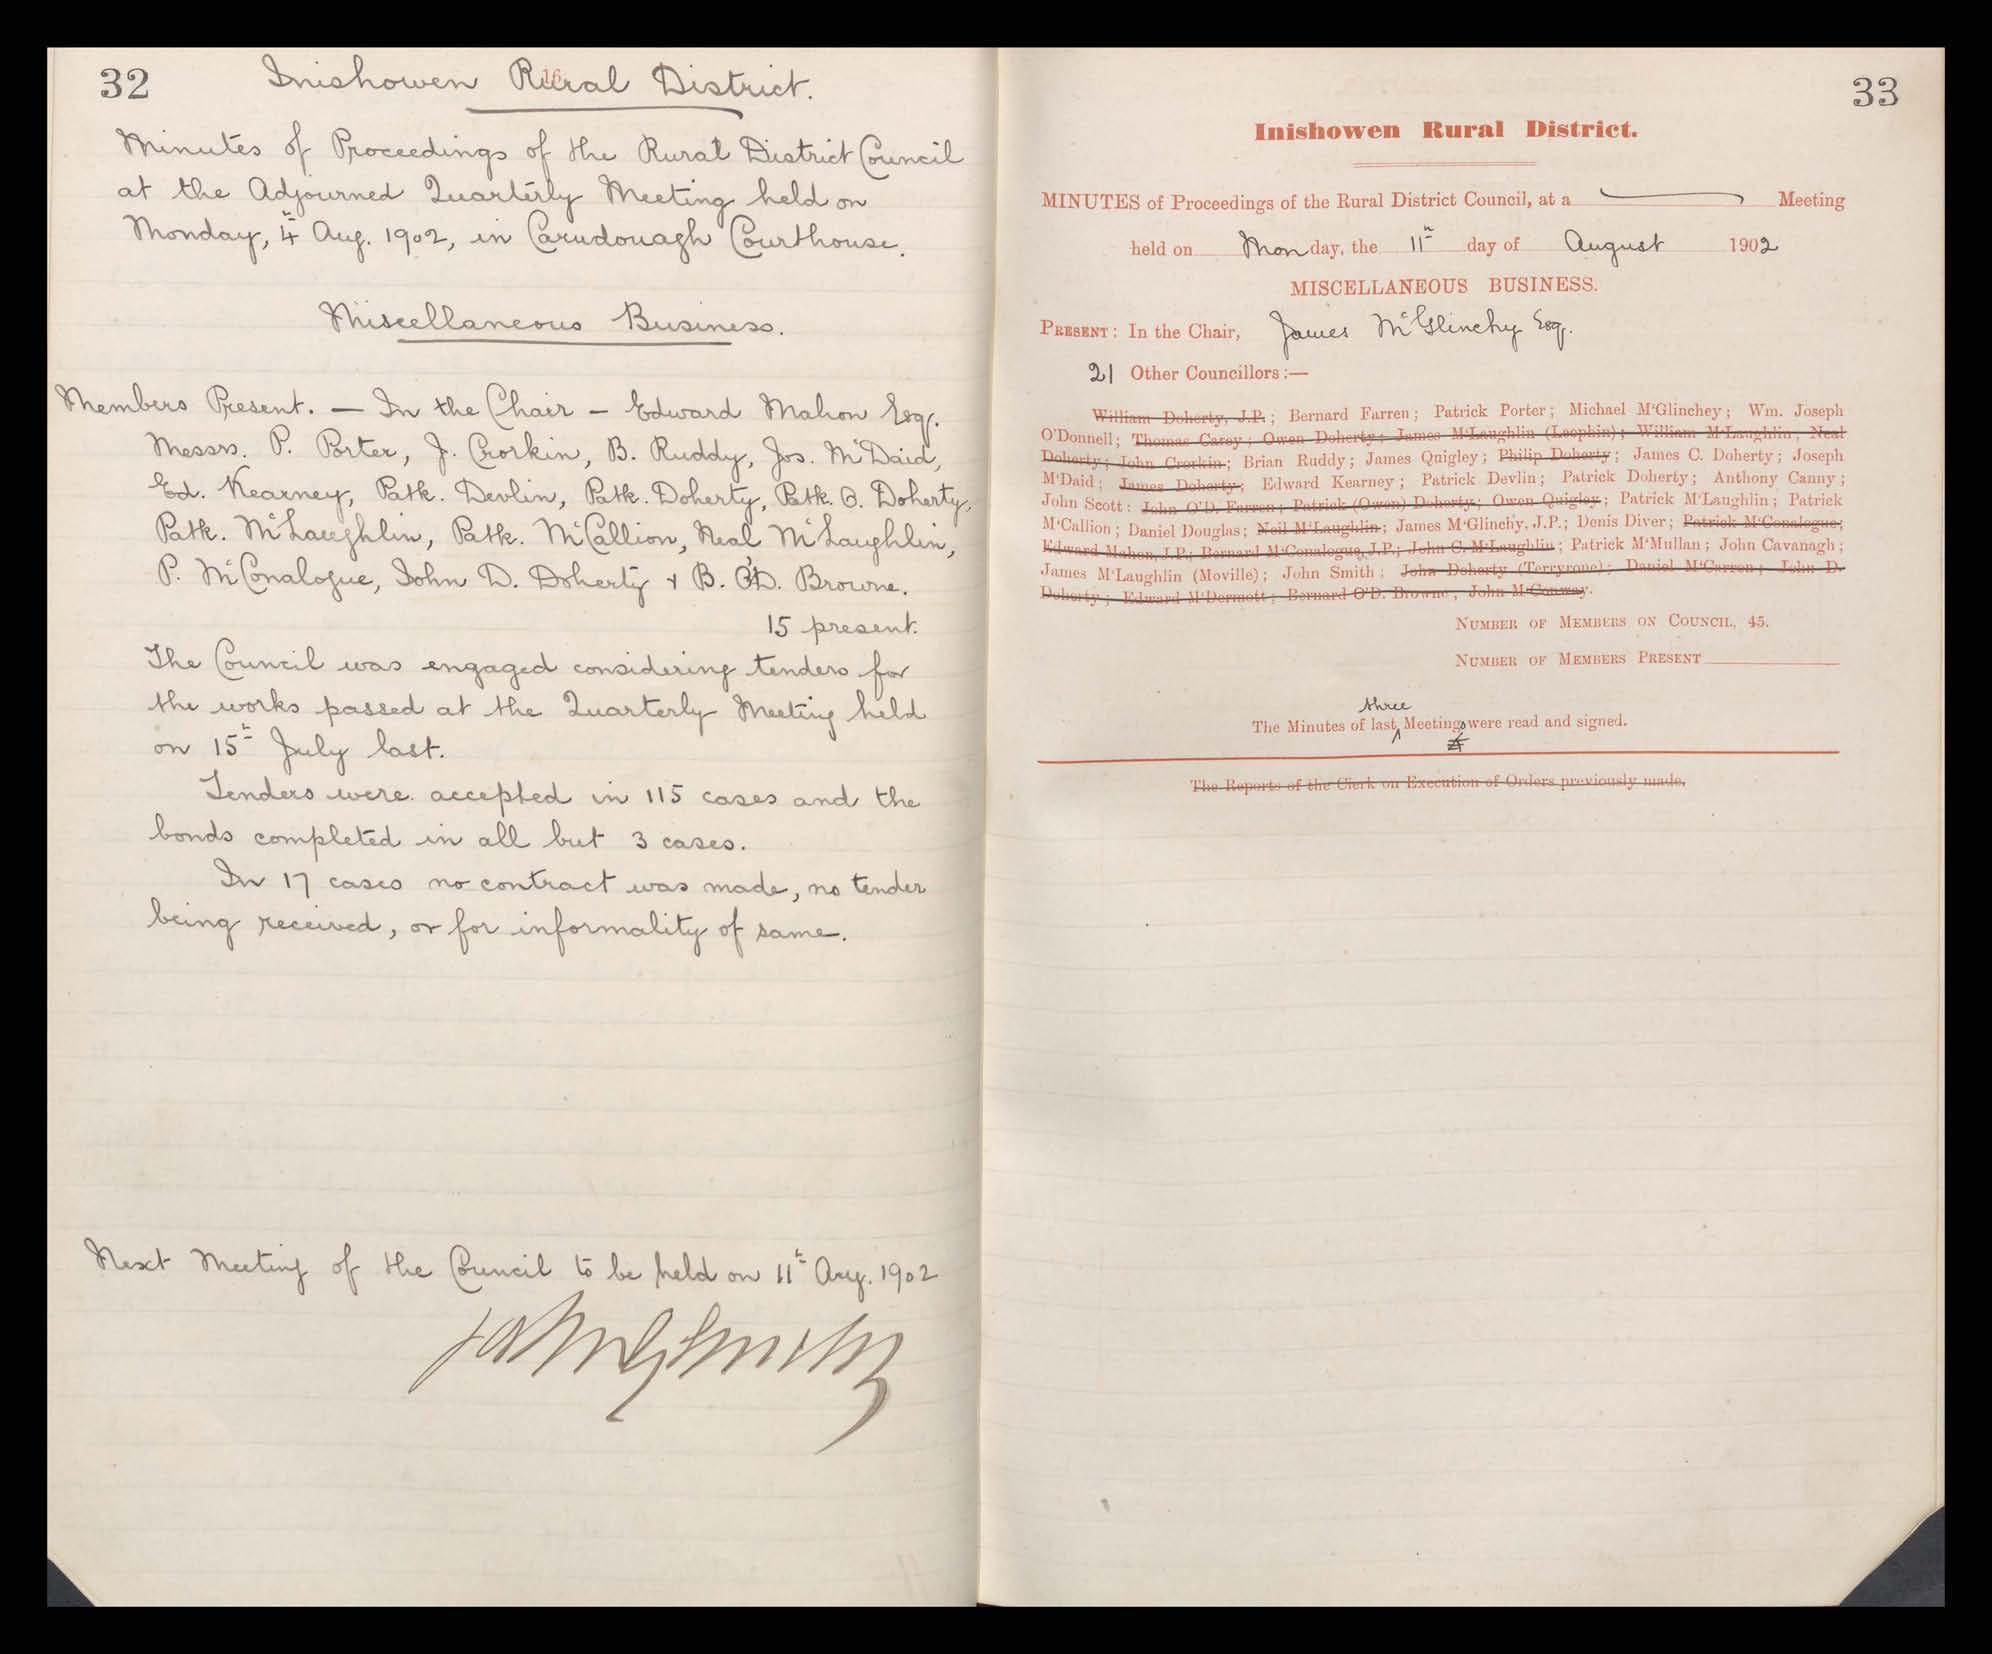 32
16
Inishowen Rural District.
Minutes of Proceedings of the Rural District Council
at the Adjourned Quarterly Meeting held on
Monday, 4th Aug. 1902, in Carndonagh Courthouse.
Miscellaneous Business.
Members Present. — In the Chair – Edward Mahon Esqr.
Messrs. P. Porter, J. Crorkin, B. Ruddy, Jos. McDaid,
Ed. Kearney, Patk. Devlin, Patk. Doherty, Patk. O. Doherty,
Patk. McLaughlin, Patk. McCallion, Neal McLaughlin,
P. McConalogue, John D. Doherty & B. O'D. Browne.
15 present.
The Council was engaged considering tenders for
the works passed at the Quarterly Meeting held
on 15th July last.
Tenders were accepted in 115 cases and the
bonds completed in all but 3 cases.
In 17 cases no contract was made, no tender
being received, or for informality of same.
Next Meeting of the Council to be held on 11th Aug. 1902
33
Inishowen Rural District.
MINUTES of Proceedings of the Rural District Council, at a Meeting
held on Monday, the 11th day of August 1902
MISCELLANEOUS BUSINESS.
PRESENT: In the Chair, James McGlinchy Esq.
21 Other Councillors:—
William Doherty, J.P.; Bernard Farren; Patrick Porter; Michael M'Glinchey; Wm. Joseph
O'Donnell; Thomas Carey; Owen Doherty; James M'Laughlin (Leophin); William M'Laughlin; Neal
Doherty; John Crorkin; Brian Ruddy; James Quigley; Philip Doherty; James C. Doherty; Joseph
M'Daid; James Doherty; Edward Kearney; Patrick Devlin; Patrick Doherty; Anthony Canny;
John Scott: John O'D. Farren; Patrick (Owen) Doherty; Owen Quigley; Patrick M'Laughlin; Patrick
M'Callion; Daniel Douglas; Neil M'Laughlin; James M'Glinchy, J.P.; Denis Diver; Patrick M'Conalogue;
Edward Mahon, J.P.; Bernard M'Conalogue, J.P.; John C. M'Laughlin; Patrick M'Mullan; John Cavanagh;
James M'Laughlin (Moville); John Smith; John Doherty (Terryrone); Daniel M'Carron; John D.
Doherty; Edward M'Dermott; Bernard O'D. Browne; John M'Conway.
NUMBER OF MEMBERS ON COUNCIL, 45.
NUMBER OF MEMBERS PRESENT
The Minutes of last three Meetings were read and signed.
The Reports of the Clerk on Execution of Orders previously made.